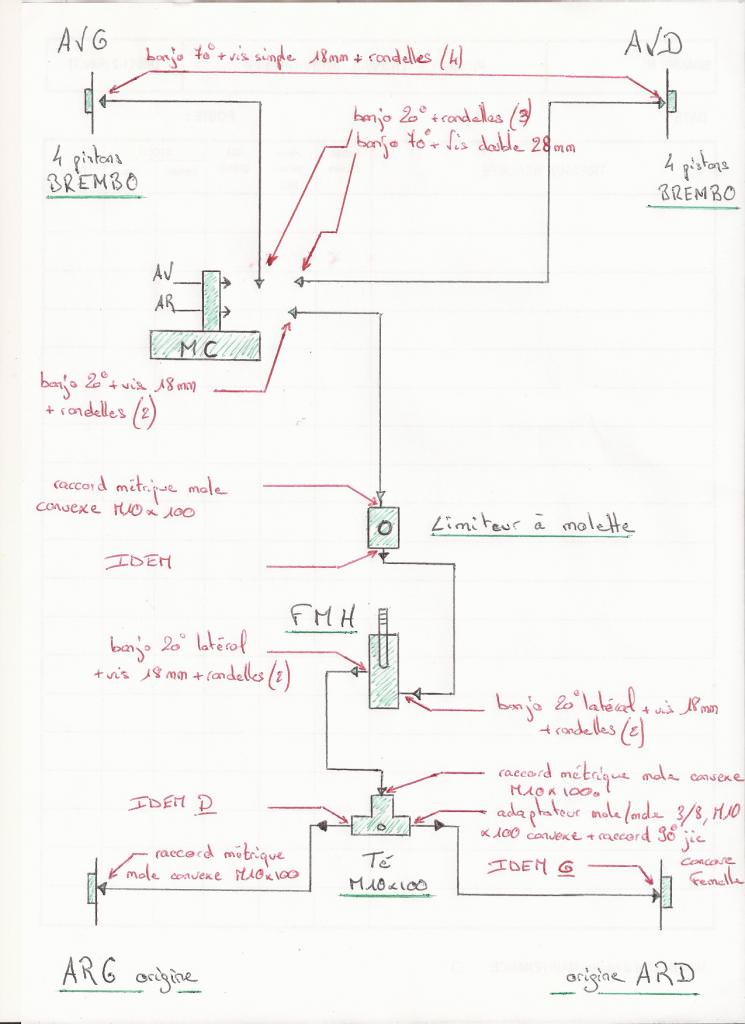 AVG
AVD
banjo 70° + vis simple 18mm + rondelles (4)
banjo 20° + rondelles (3)
banjo 70° + vis double 28mm
4 pistons
BREMBO
4 pistons
BREMBO
AV
AR
MC
banjo 20° + vis 18mm
+ rondelles (2)
raccord métrique male
convexe M10 x 100
Limiteur à molette
IDEM
FMH
banjo 20° latéral
+ vis 18mm + rondelles (2)
banjo 20° latéral + vis 18mm
+ rondelles (2)
raccord métrique male convexe
M10 x 100
IDEM D
adaptateur male/male 3/8, M10
x 100 convexe + raccord 90° jic
concave
Femelle
raccord métrique
male convexe M10x100
Té
M10x100
IDEM G
ARG origine
origine ARD